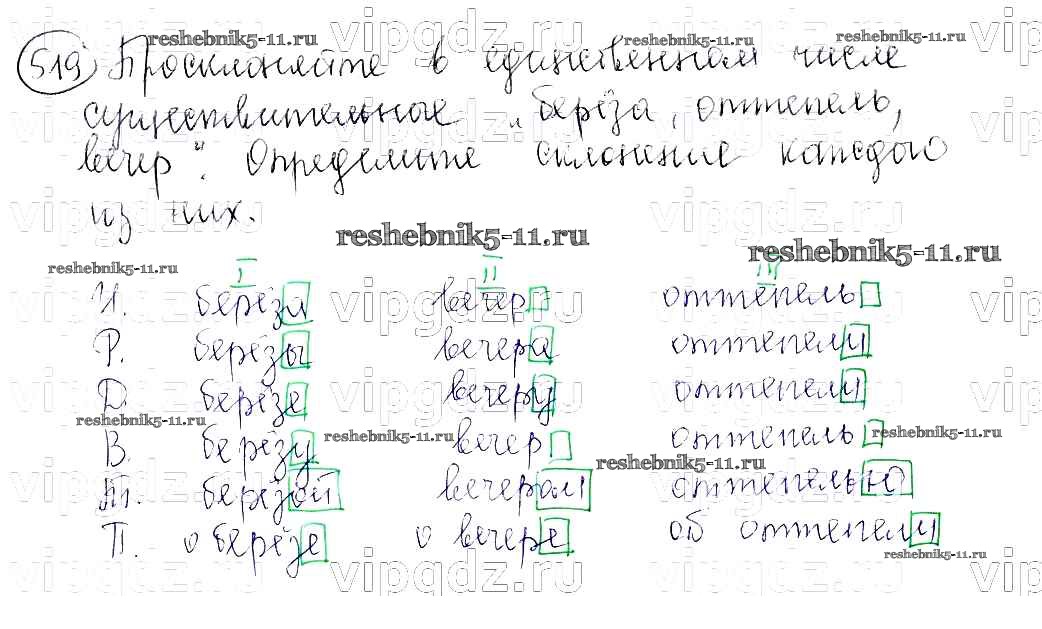 519 Просклоняйте в единственном числе
существительные „берёза, оттепель,
вечер“. Определите склонение каждого
из них.
I II III
И. берёза вечер оттепель
Р. берёзы вечера оттепели
Д. берёзе вечеру оттепели
В. берёзу вечер оттепель
Т. берёзой вечером оттепелью
П. о берёзе о вечере об оттепели
reshebnik5-11.ru
vipgdz.ru